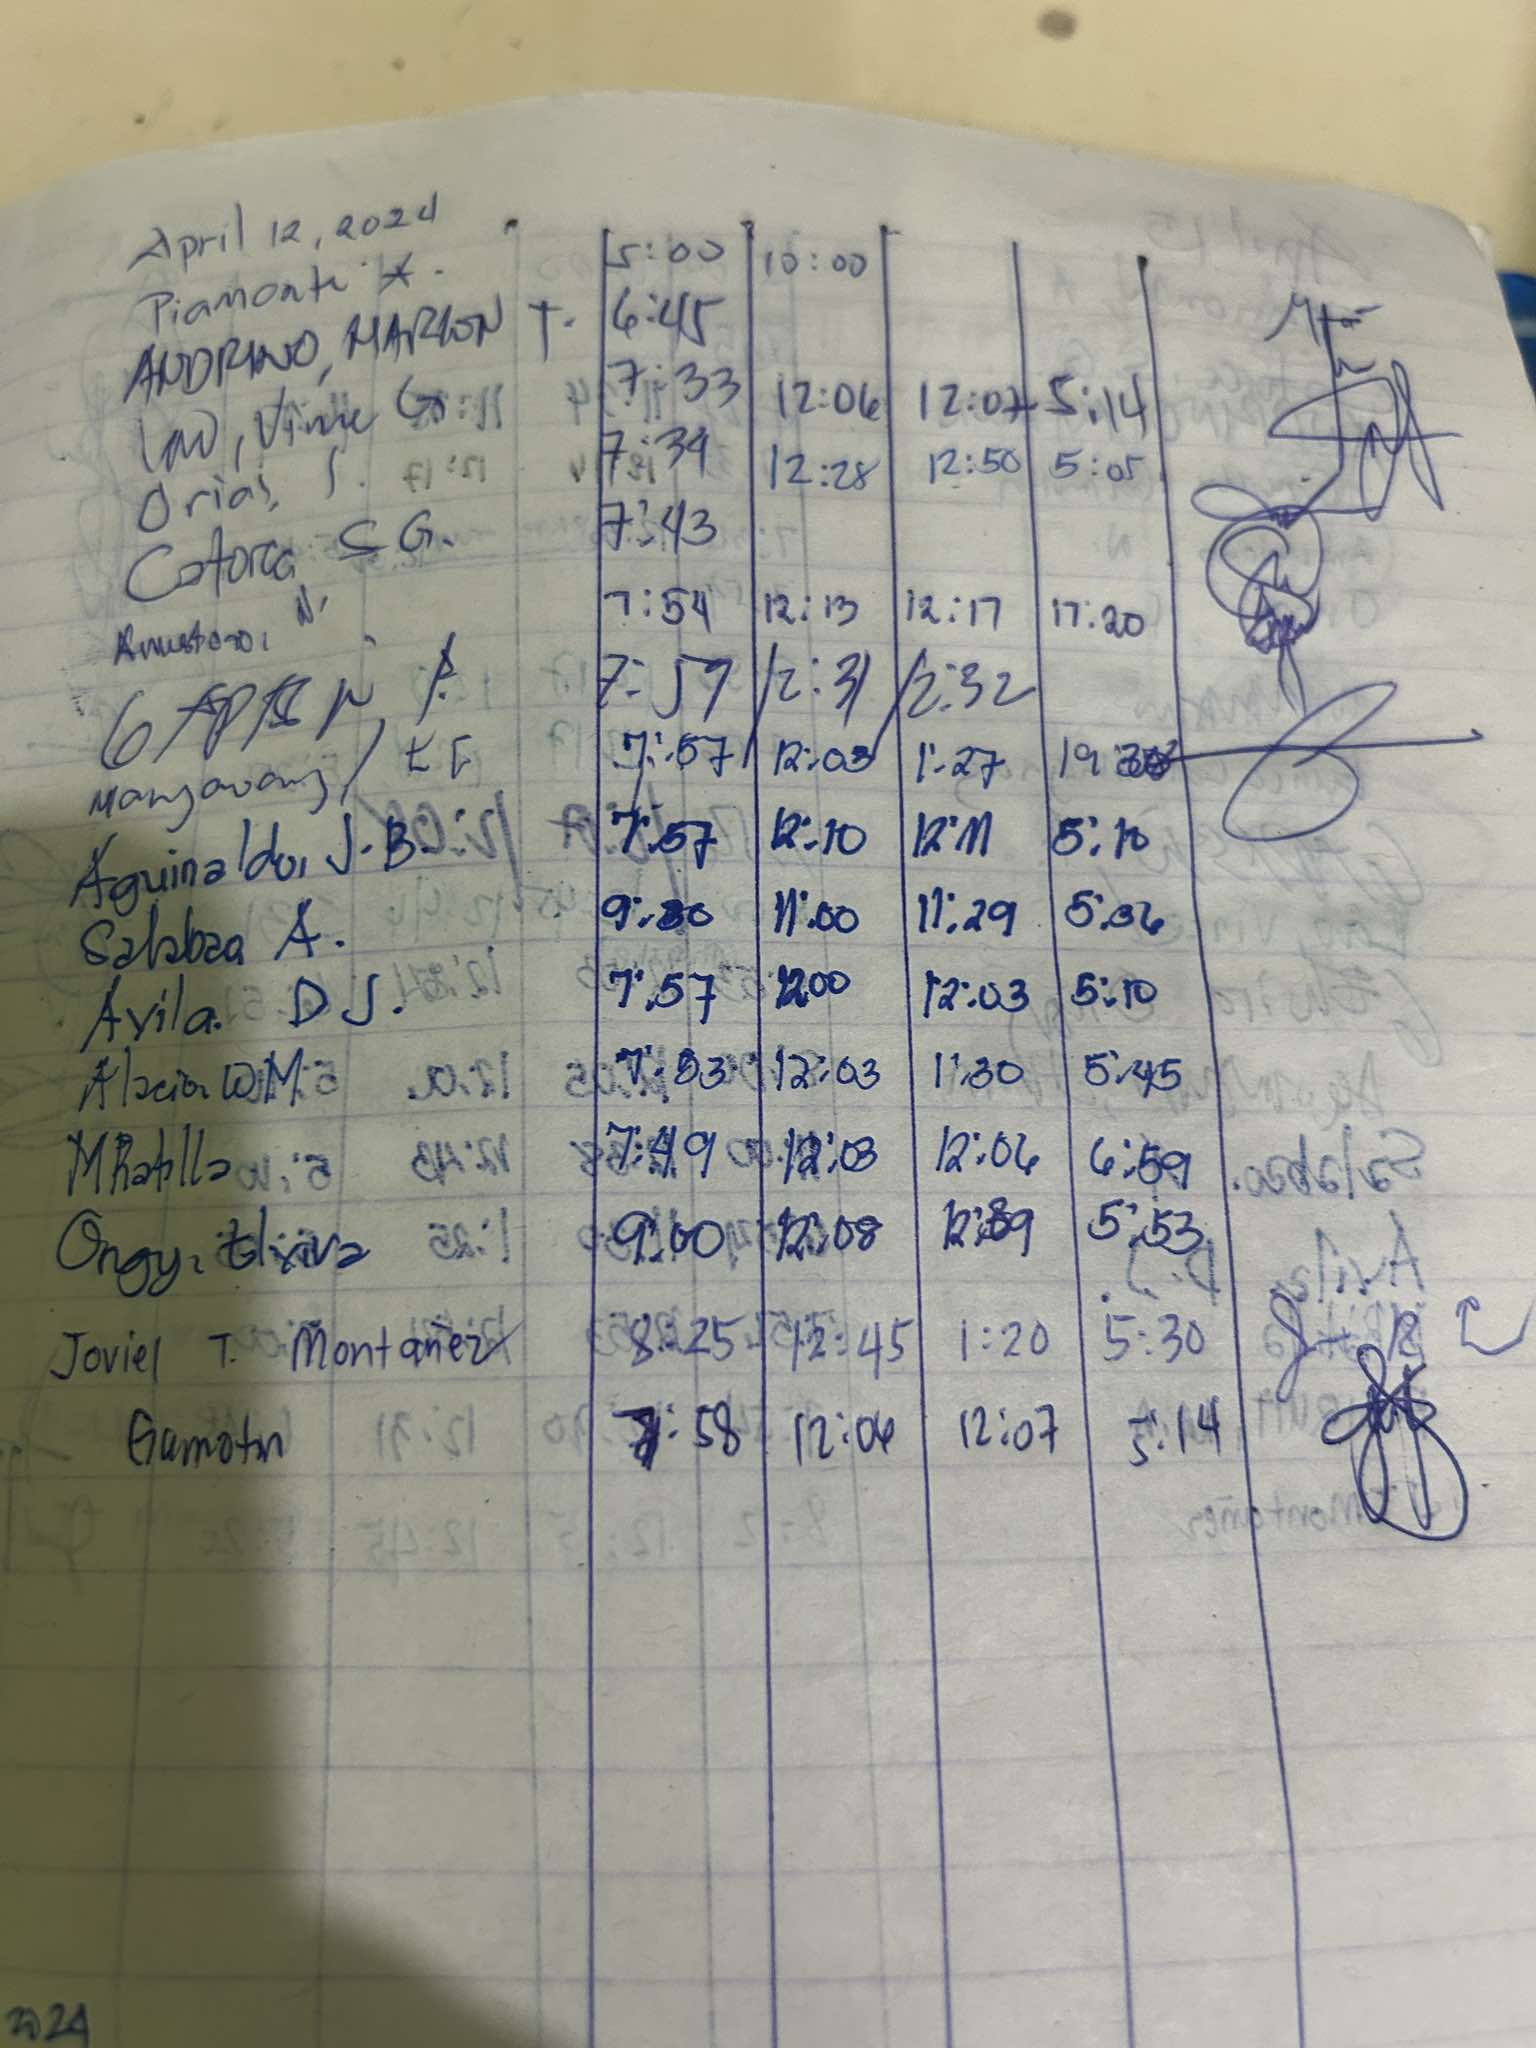 April 12, 2024
Piamonte A. 5:00 10:00
ANDRINO, MARLON T. 6:45
Lao, Vince G. 7:33 12:06 12:07 5:14
Orias, J. 7:34 12:28 12:50 5:05
Catorca S G. 7:43
N. 7:54 12:13 12:17 17:20
7:57 12:31 12:32
7:57 12:03 1:27
Aguinaldo, J.B. 7:57 12:10 12:11 5:10
Salabao A. 9:30 11:00 11:29 5:06
Avila. D J. 7:57 1200 12:03 5:10
Alacio WM. 7:53 12:03 1:30 5:45
MRatilla 7:49 12:03 12:06 6:59
Ongy, 9:00 12:08 12:39 5:53
Joviel T. Montañez 8:25 12:45 1:20 5:30
Gamotin 7:58 12:06 12:07 5:14
2024